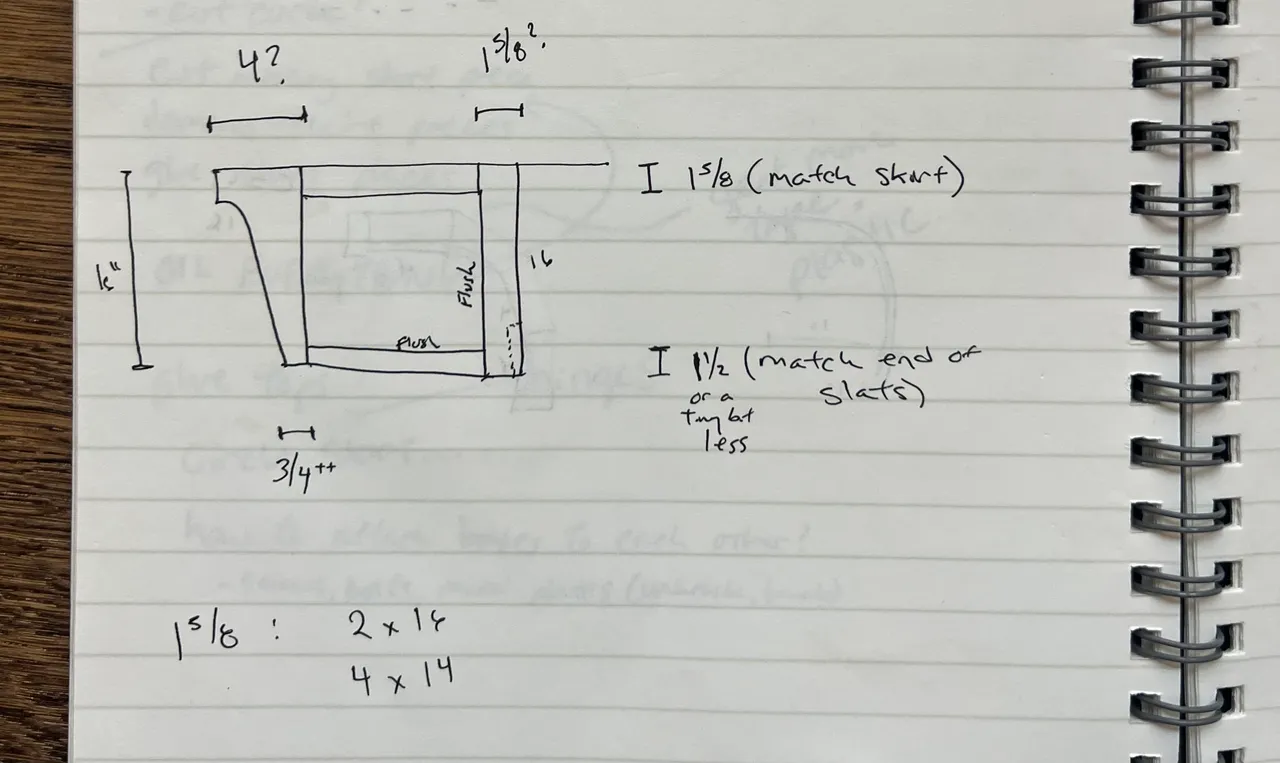 4?
1 5/8?
I 1 5/8 (match skirt)
16
Flush
Flush
I 1 1/2 (match end of
slats)
or a
tiny bit
less
3/4 ++
1 5/8 : 2 x 16
4 x 14